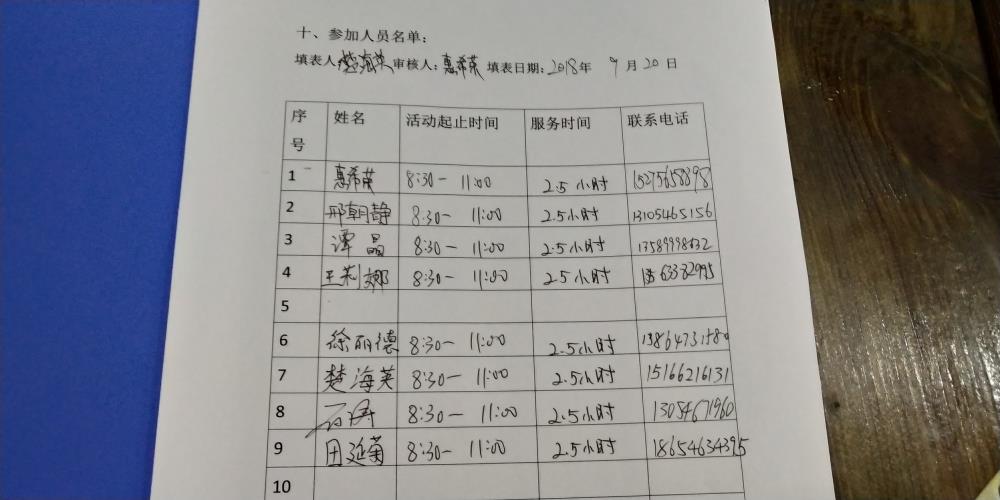 十、参加人员名单：
填表人：楚海英 审核人：惠希荣 填表日期：2018年 9月20日
序号 姓名 活动起止时间 服务时间 联系电话
1 惠希荣 8:30— 11:00 2.5小时
2 邢朝静 8:30— 11:00 2.5小时 13105465156
3 谭晶 8:30— 11:00 2.5小时
4 王莉娜 8:30— 11:00 2.5小时
5
6 徐丽德 8:30— 11:00 2.5小时 13864731580
7 楚海英 8:30— 11:00 2.5小时 15166216131
8 石涛 8:30— 11:00 2.5小时 13054671960
9 田延菊 8:30— 11:00 2.5小时 18654634395
10